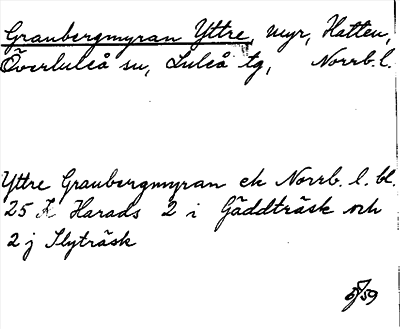 Granbergmyran Yttre, myr, Hatten,
Överluleå sn, Luleå tg, Norrb. l.
Yttre Granbergmyran ek Norrb. l. bl.
25 K Harads 2 i Gäddträsk och
2 j Slyträsk
59